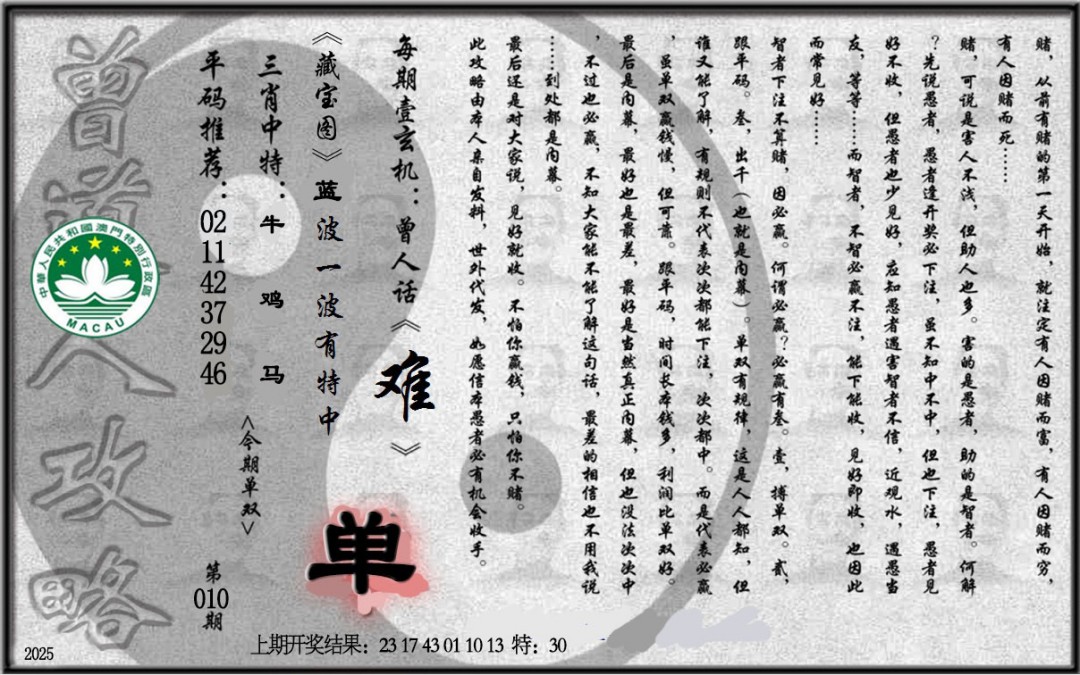 赌，从前有赌的第一天开始，就注定有人因赌而富，有人因赌而穷，
有人因赌而死……
赌，可说是害人不浅，但助人也多。害的是愚者，助的是智者。何解
？先说愚者，愚者逢开奖必下注，虽不知中不中，但也下注，愚者见
好不收，但愚者也少见好，应知愚者遇害智者不信，近观水，遇愚当
友，等等……而智者，不智必赢不注，能下能收，见好即收，也因此
而常见好……
智者下注不算赌，因必赢。何谓必赢？必赢有叁。壹，搏单双。贰，
跟平码。叁，出千（也就是内幕）。单双有规律，这是人人都知，但
谁又能了解，有规则不代表次次都能下注，次次都中。而是代表必赢
，虽单双赢钱慢，但可靠。跟平码，时间长本钱多，利润比单双好。
最后是内幕，最好也是最差，最好是当然真正内幕，但也没法次次中
，不过也必赢，不知大家能不能了解这句话，最差的相信也不用我说
……到处都是内幕。
最后还是对大家说，见好就收。不怕你赢钱，只怕你不赌。
此攻略由本人亲自发料，世外代发，如愿信本愚者必有机会收手。
每期壹玄机：曾人话《难》
《藏宝图》蓝波一波有特中
单
三肖中特：牛 鸡 马
<今期单双>
平码推荐：02 11 42 37 29 46
第010期
曾道人攻略
中華人民共和國澳門特別行政區
MACAU
上期开奖结果：23 17 43 01 10 13 特：30
2025